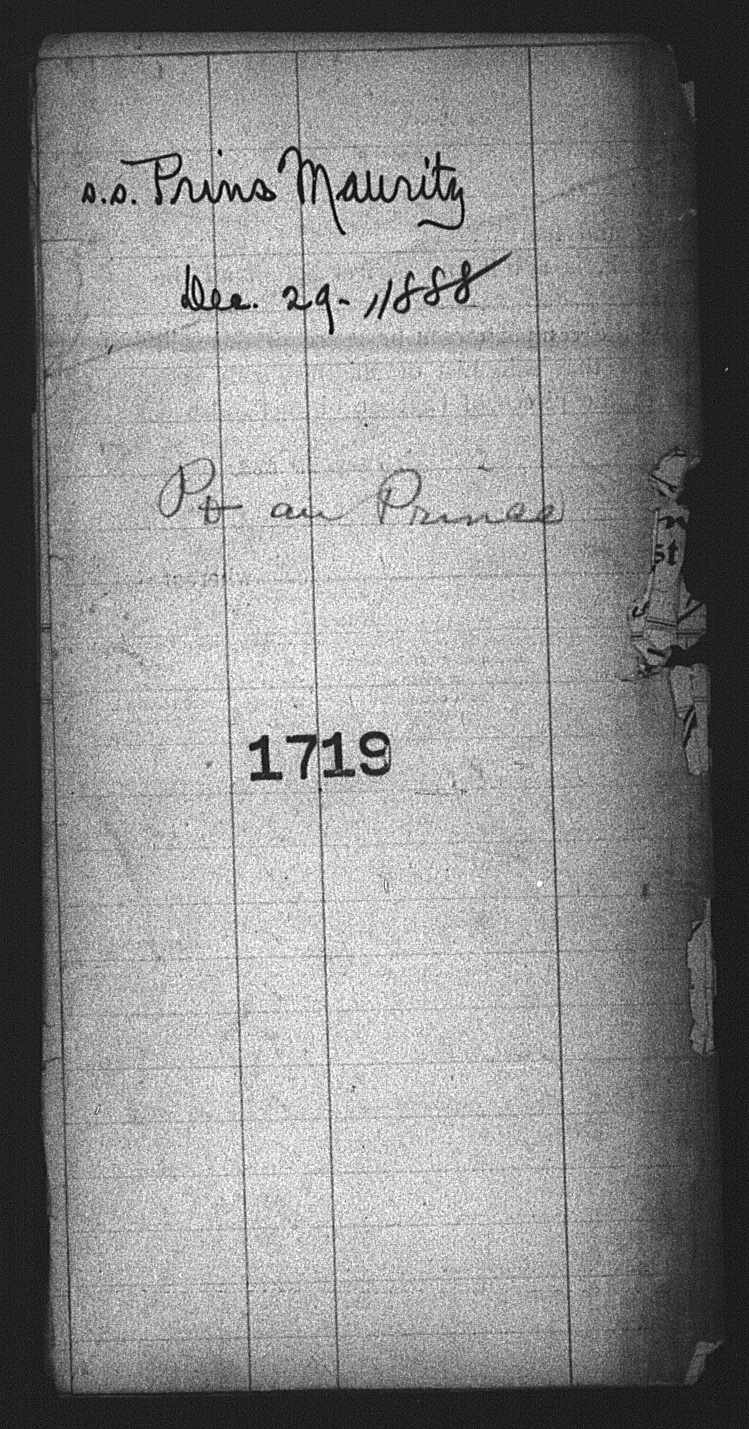 s.s. Prins Maurits
Dec. 29 - 1888
Pt au Prince
st
1719